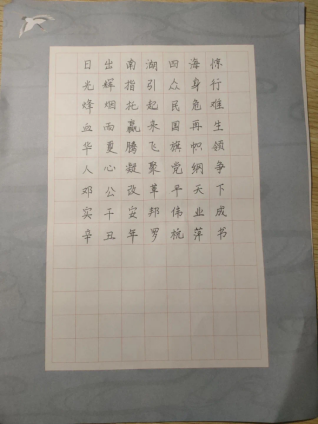 日出南湖四海惊
光辉指引众身行
烽烟托起民危难
血雨赢来国再生
华夏腾飞旗帜领
人心凝聚党纲争
邓公改革平天下
实干安邦伟业成
辛丑年罗杭萍书